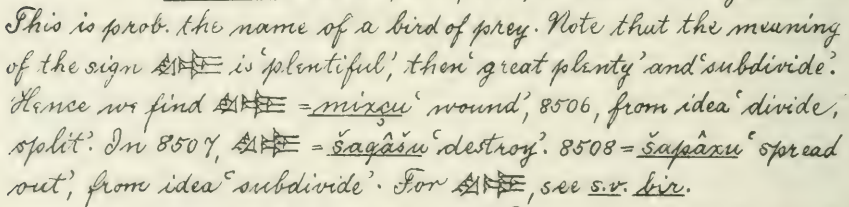 This is prob. the name of a bird of prey. Note that the meaning
of the sign is ‘plentiful’, then ‘great plenty’ and ‘subdivide’.
Hence we find = mixçu ‘wound’, 8506, from idea ‘divide,
split’. In 8507, = šagâšu ‘destroy’. 8508 = šapâxu ‘spread
out’, from idea ‘subdivide’. For , see s.v. bir.